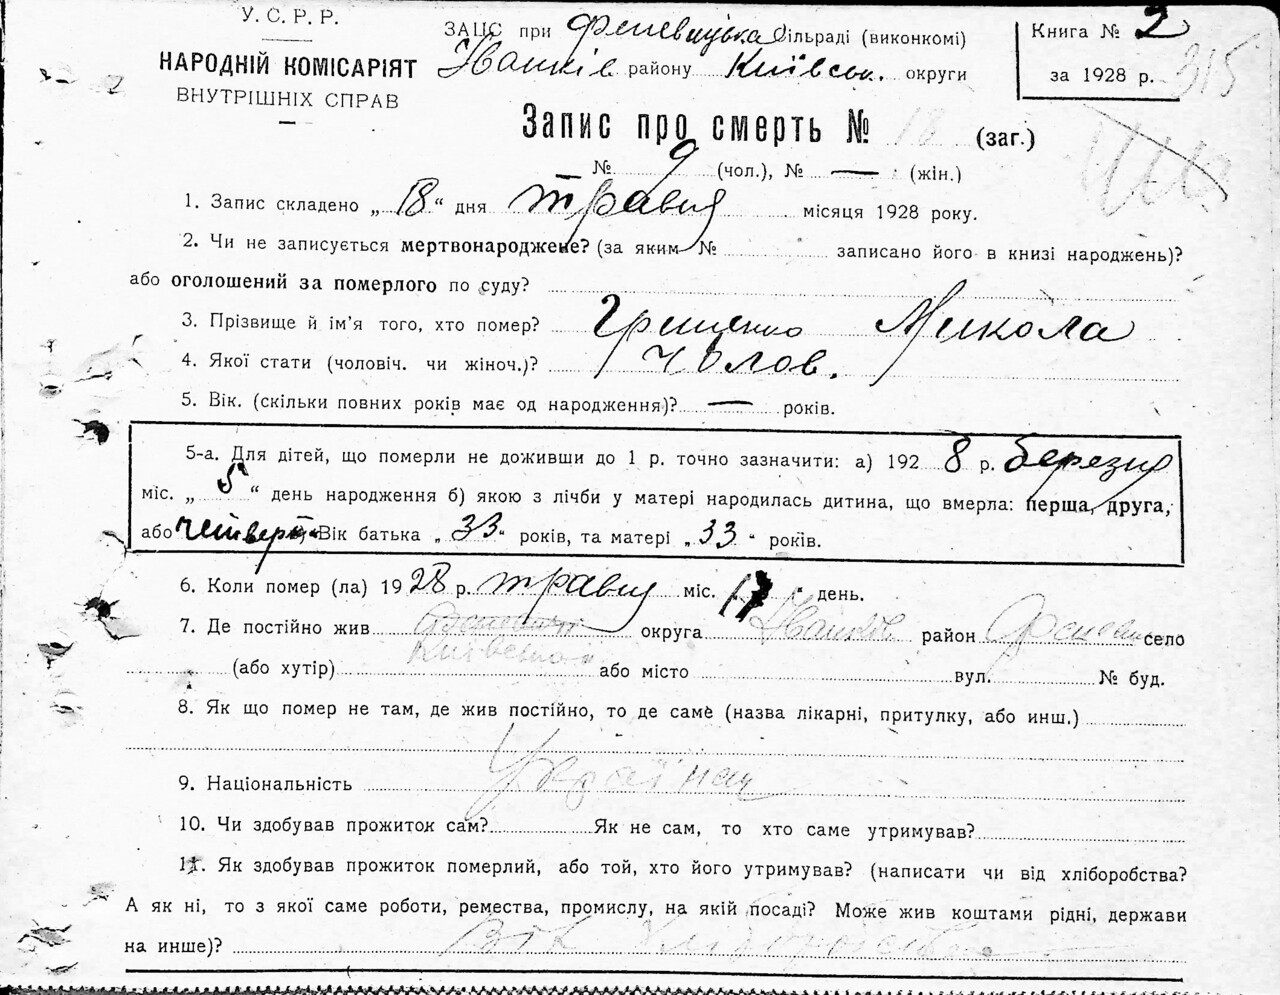 У. С. Р. Р.
НАРОДНІЙ КОМІСАРІЯТ
ВНУТРІШНІХ СПРАВ
ЗАЦС при Феневицька сільраді (виконкомі)
Іванків району Київськ. округи
Книга № 2
за 1928 р.
315
Запис про смерть № 18 (заг.)
№ 9 (чол.), № — (жін.)
1. Запис складено „ 18 “ дня травня місяця 1928 року.
2. Чи не записується мертвонароджене? (за яким № записано його в книзі народжень)?
або оголошений за померлого по суду?
3. Прізвище й ім'я того, хто помер? Грищенко Микола
4. Якої стати (чоловіч. чи жіноч.)? чолов.
5. Вік. (скільки повних років має од народження)? — років.
5-а. Для дітей, що померли не доживши до 1 р. точно зазначити: а) 192 8 р. березня
міс. „ 5 “ день народження б) якою з лічби у матері народилась дитина, що вмерла: перша, друга,
або четверт Вік батька „ 33 “ років, та матері „ 33 “ років.
6. Коли помер (ла) 19 28 р. травня міс. 17 день.
7. Де постійно жив округа Іванків район Феневич село
Київська
(або хутір) або місто вул. № буд.
8. Як що помер не там, де жив постійно, то де саме (назва лікарні, притулку, або инш.)
9. Національність Українец
10. Чи здобував прожиток сам? Як не сам, то хто саме утримував?
11. Як здобував прожиток померлий, або той, хто його утримував? (написати чи від хліборобства?
А як ні, то з якої саме роботи, ремества, промислу, на якій посаді? Може жив коштами рідні, держави
на инше)? хліборобства